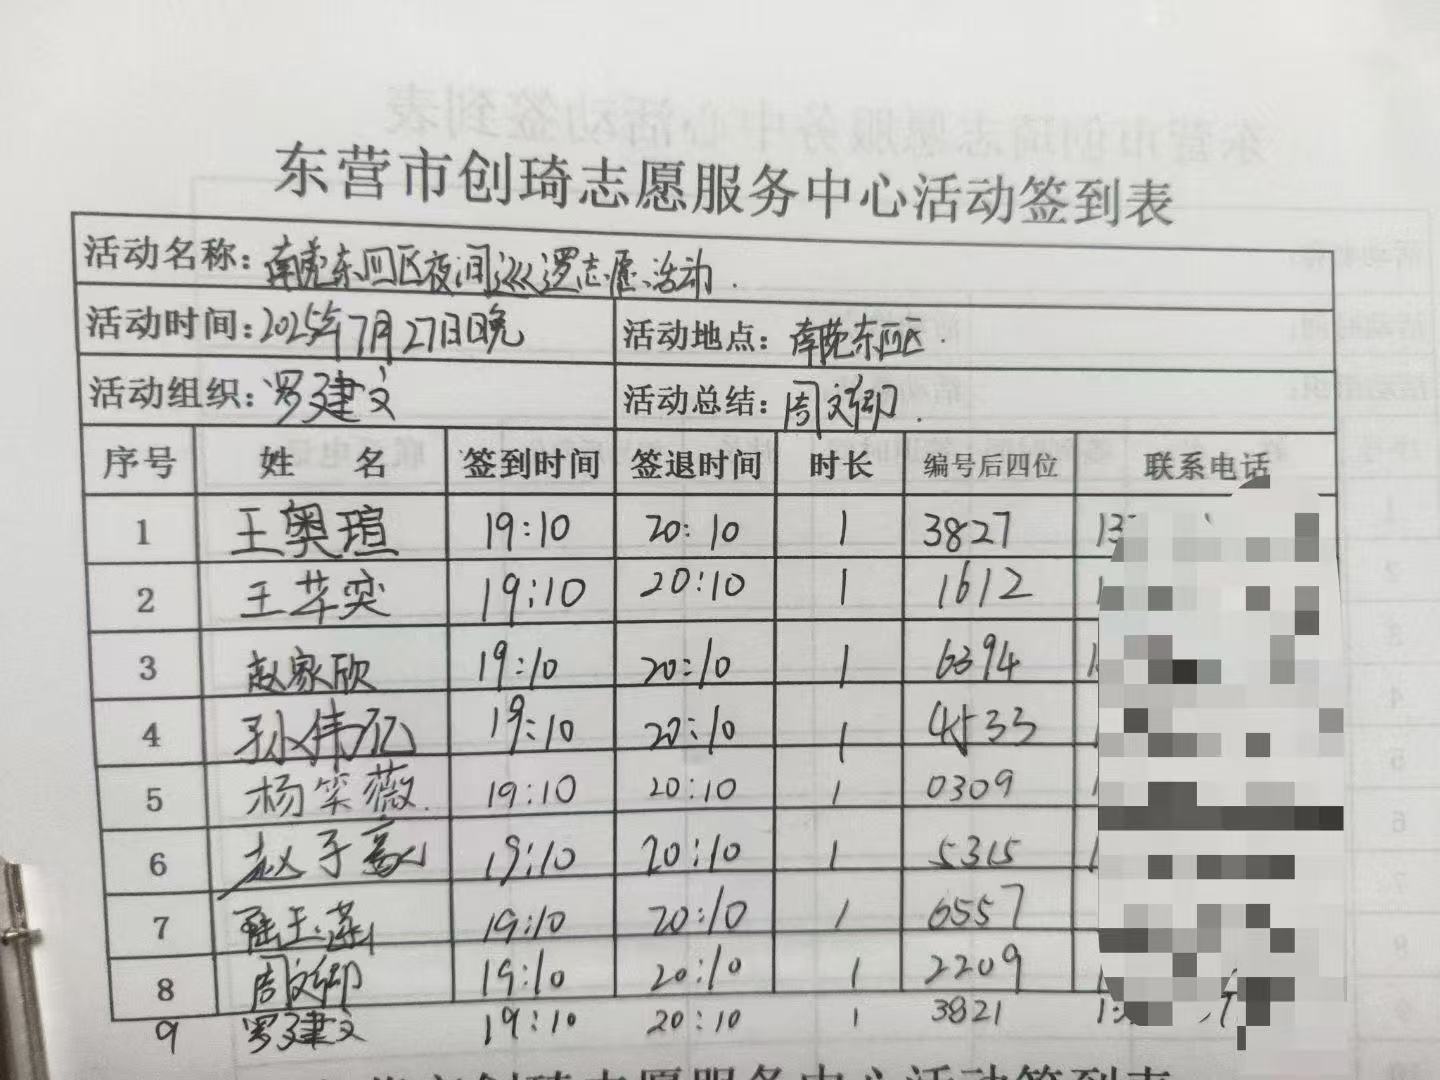 东营市创琦志愿服务中心活动签到表
活动名称：南苑东四区夜间巡逻志愿活动.
活动时间：2025年7月27日晚 活动地点：南苑东四区.
活动组织：罗建文 活动总结：周文卿.
序号 姓 名 签到时间 签退时间 时长 编号后四位 联系电话
1 王奥瑄 19:10 20:10 1 3827 13
2 王苹奕 19:10 20:10 1 1612 1
3 赵家欣 19:10 20:10 1 6394 1
4 孙伟亿 19:10 20:10 1 4533 1
5 杨笑薇. 19:10 20:10 1 0309 1
6 赵子 19:10 20:10 1 5315 1
7 玉莲 19:10 20:10 1 6557
8 周文卿 19:10 20:10 1 2209 1
9 罗建文 19:10 20:10 1 3821 1